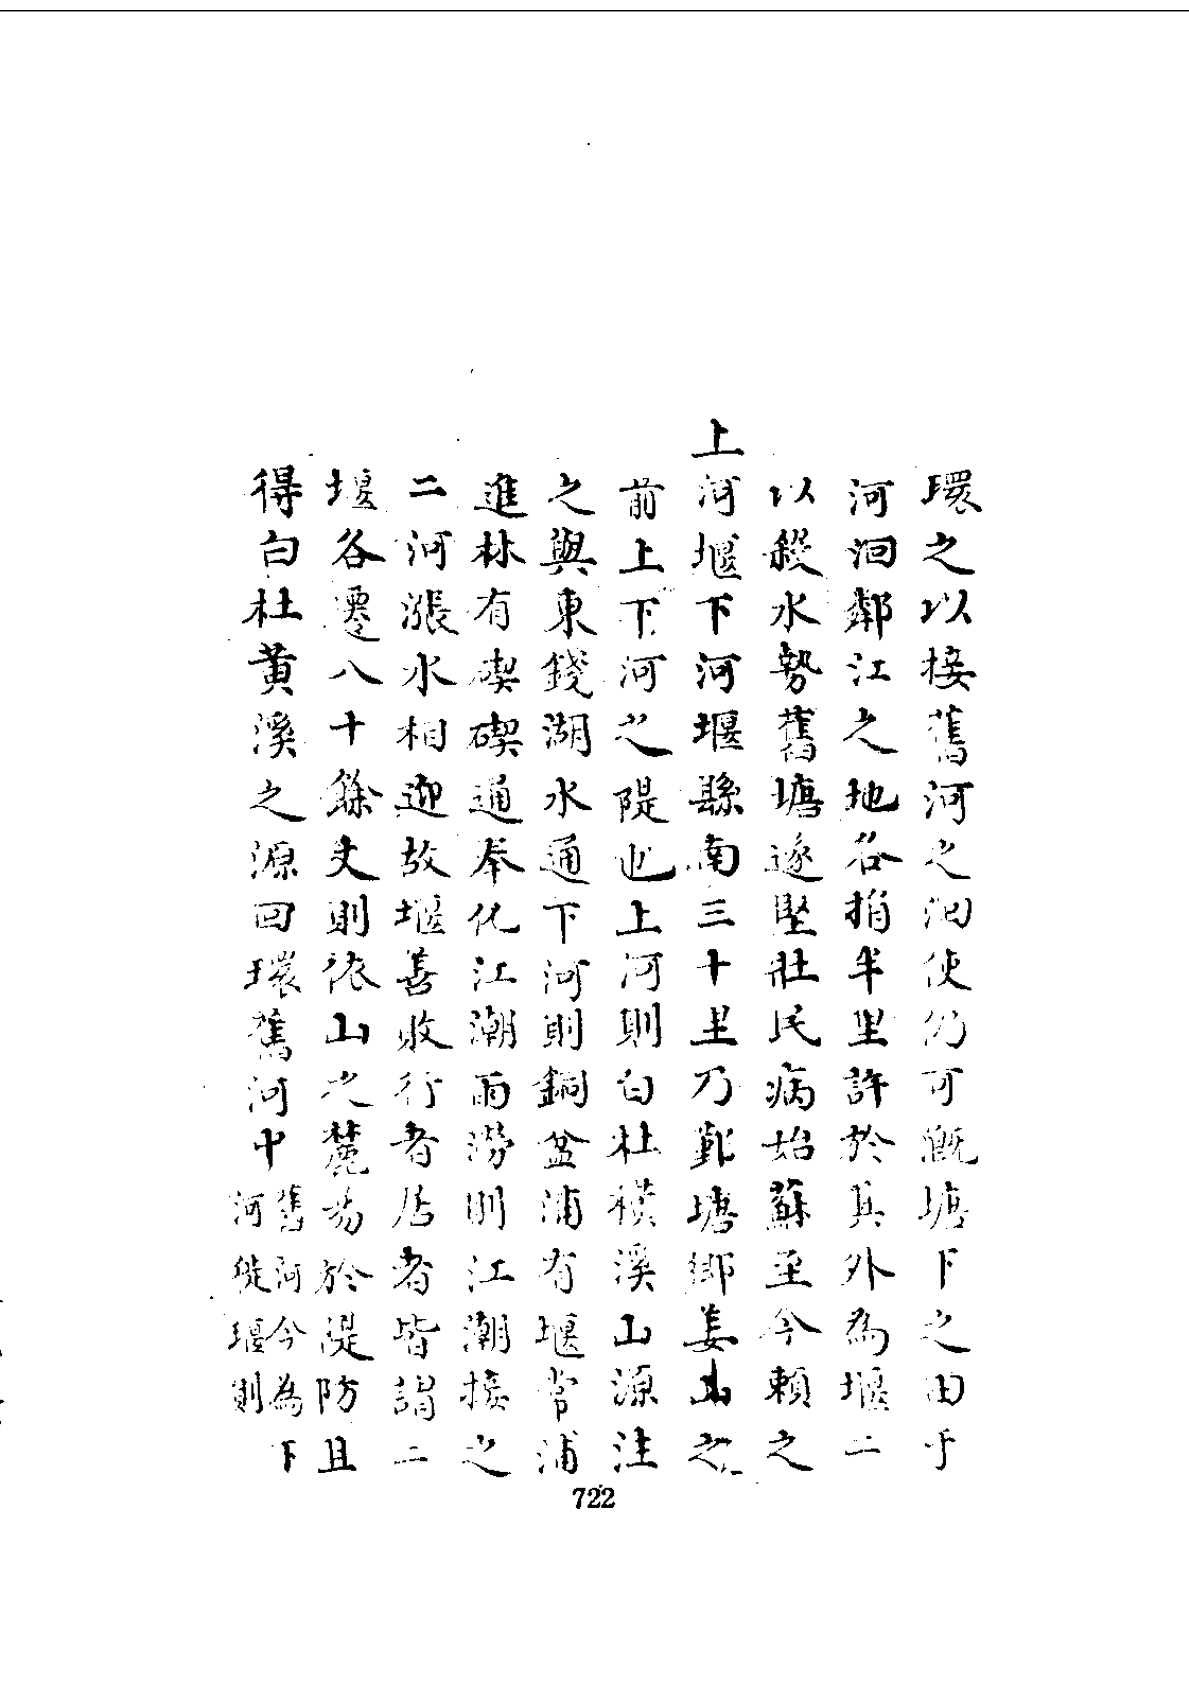 環之以接舊河之洄使仍可溉塘下之田于
河洄鄰江之地各捐半里許於其外為堰二
以殺水勢舊塘遂堅壯民病始蘇至今頼之
上河堰下河堰縣南三十里乃鄞塘鄉姜山之
前上下河之隄也上河則白杜橫溪山源注
之與東錢湖水通下河則銅盆浦有堰常浦
進林有碶碶通奉化江潮雨澇則江潮接之
二河漲水相迎故堰善敗行者居者皆謂二
堰各遷八十餘丈則依山之麓易於隄防且
得白杜黃溪之源回環舊河中
舊河今為下
河徙堰則
722